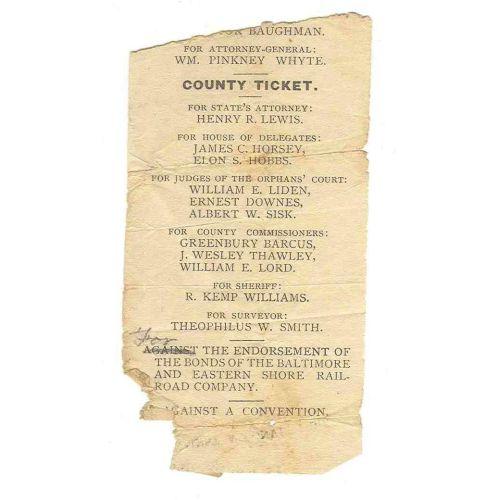 BAUGHMAN.
FOR ATTORNEY-GENERAL:
WM. PINKNEY WHYTE.
COUNTY TICKET.
FOR STATE'S ATTORNEY:
HENRY R. LEWIS.
FOR HOUSE OF DELEGATES:
JAMES C. HORSEY,
ELON S. HOBBS.
FOR JUDGES OF THE ORPHANS' COURT:
WILLIAM E. LIDEN,
ERNEST DOWNES,
ALBERT W. SISK.
FOR COUNTY COMMISSIONERS:
GREENBURY BARCUS,
J. WESLEY THAWLEY,
WILLIAM E. LORD.
FOR SHERIFF:
R. KEMP WILLIAMS.
FOR SURVEYOR:
THEOPHILUS W. SMITH.
For
AGAINST THE ENDORSEMENT OF
THE BONDS OF THE BALTIMORE
AND EASTERN SHORE RAIL-
ROAD COMPANY.
AGAINST A CONVENTION.